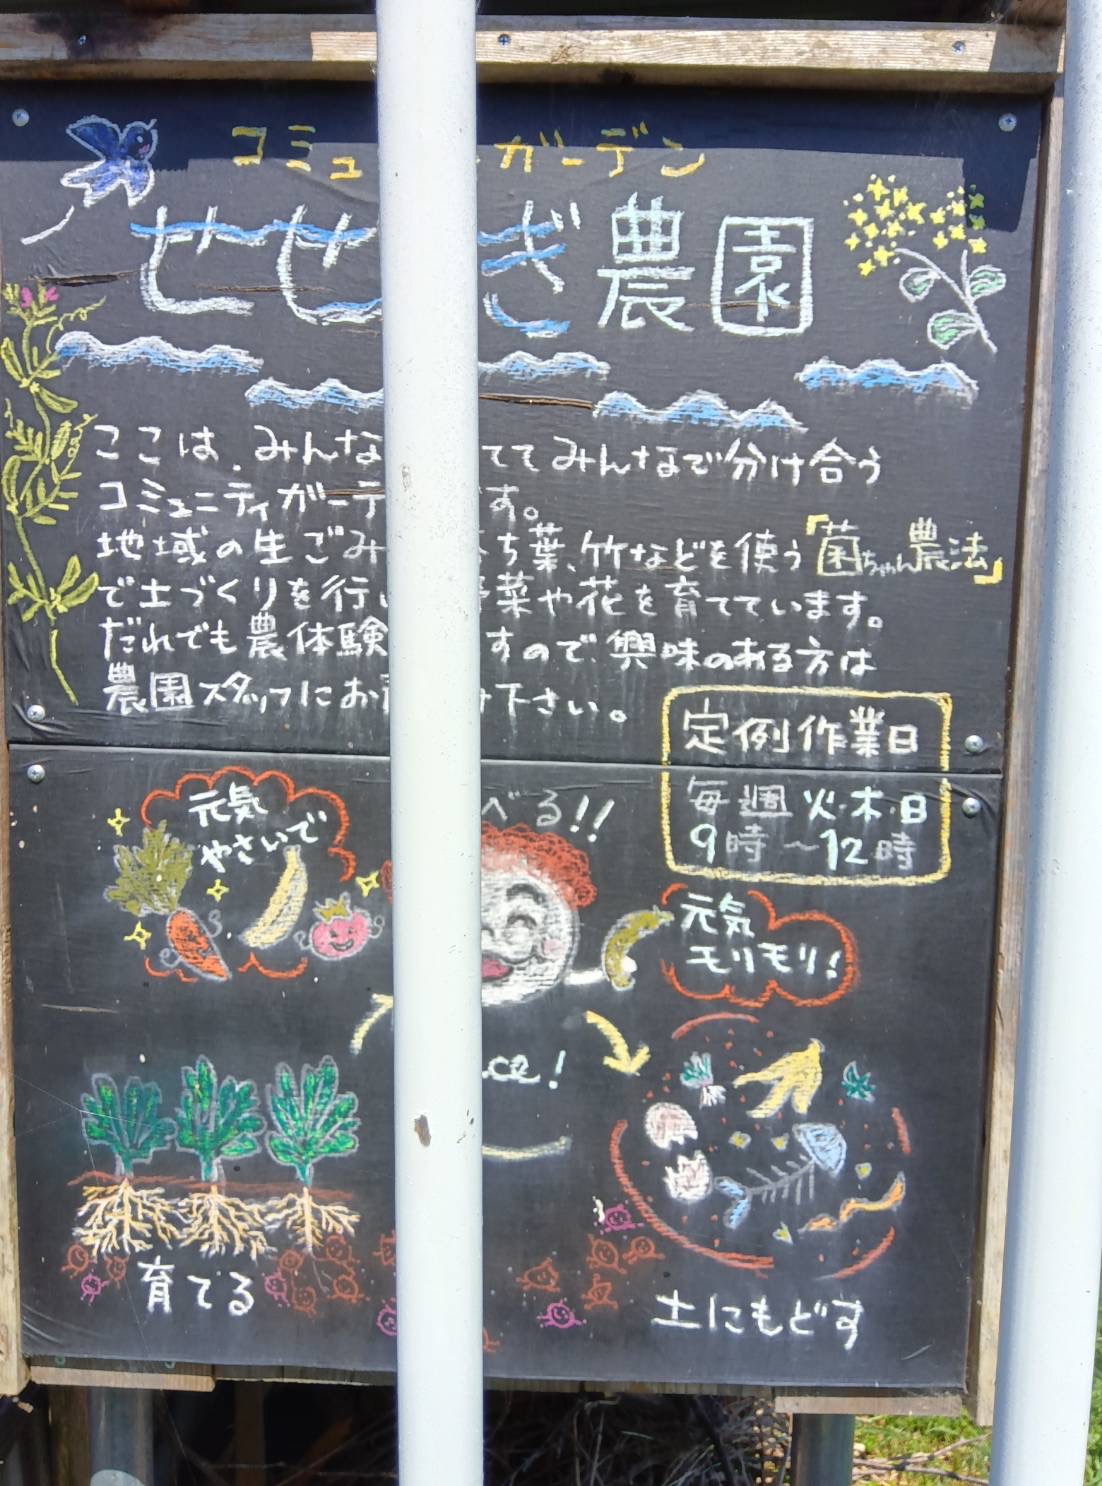 コミュ ガーデン
せせ ぎ農園
ここは、みんな ててみんなで分け合う
コミュニティガーデ です。
地域の生ごみ ち葉、竹などを使う「菌ちゃん農法」
で土づくりを行い 野菜や花を育てています。
だれでも農体験 ますので、興味のある方は
農園スタッフにお 下さい。
定例作業日
毎週 火・木・日
9時〜12時
元気
やさいで
べる!!
元気
モリモリ!
育てる
土にもどす